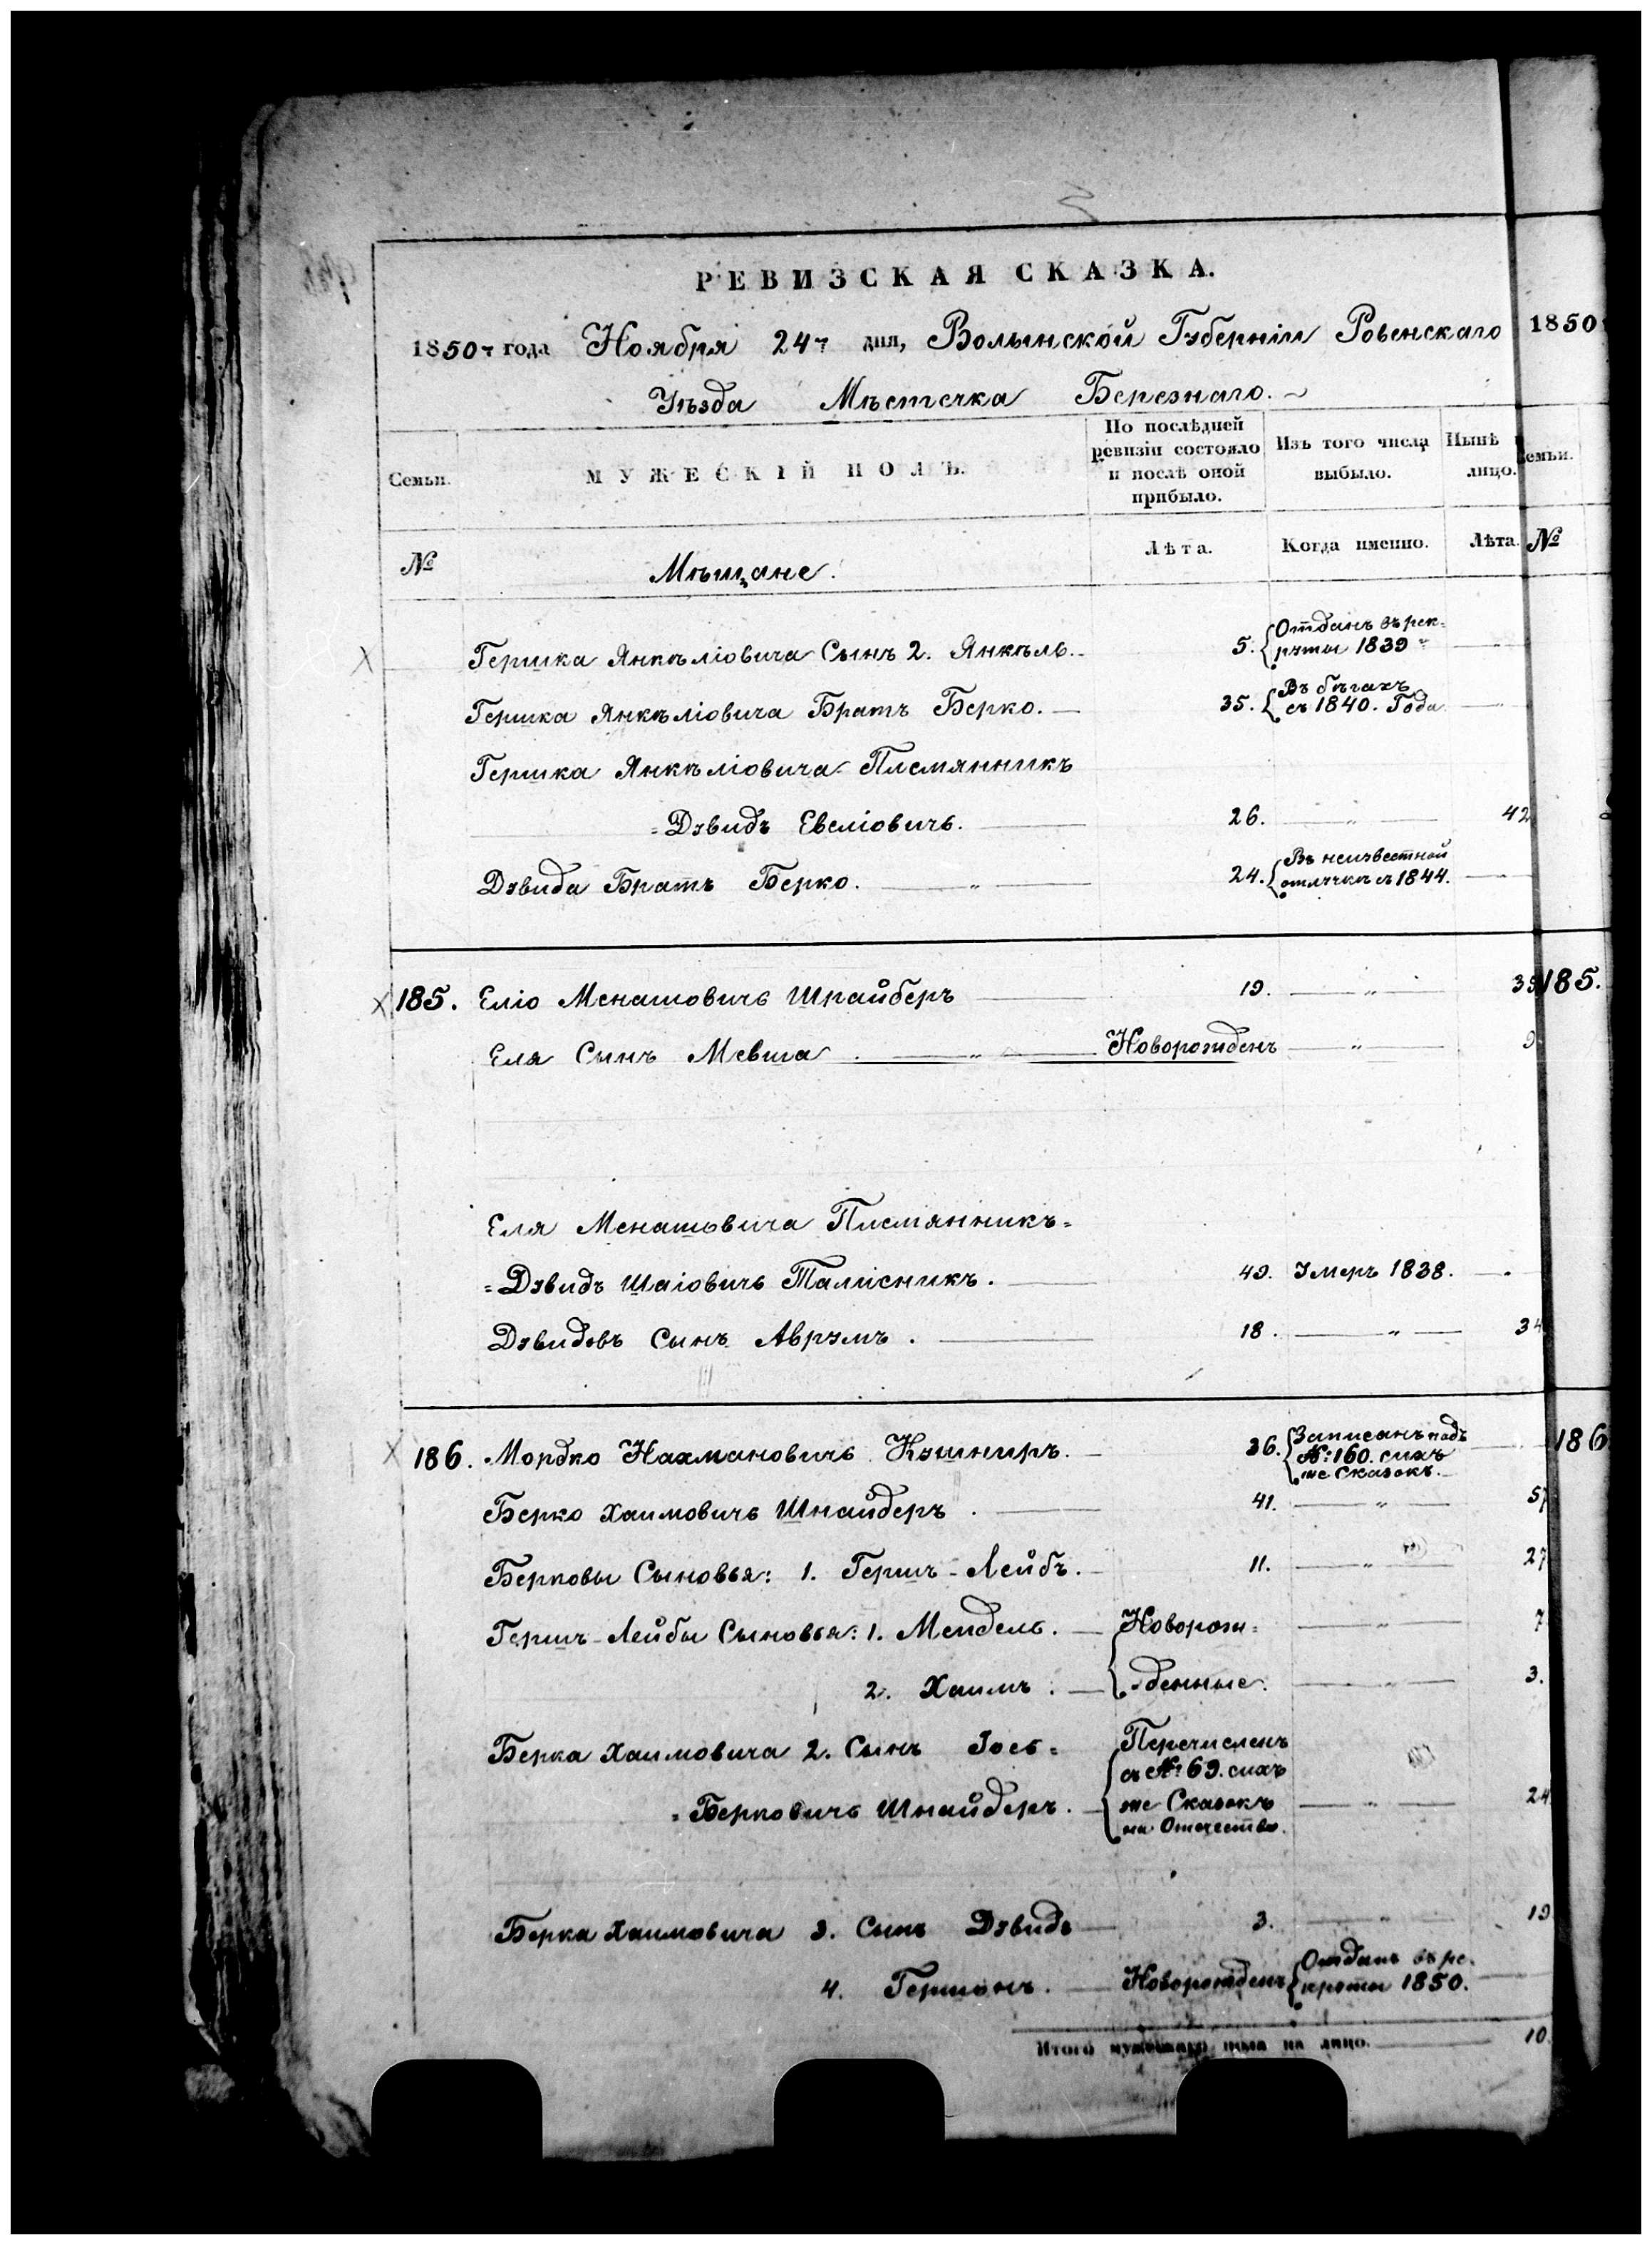 РЕВИЗСКАЯ СКАЗКА.
1850 года Ноября 24 дня, Волынской Губерніи Ровенскаго
1850
Уѣзда Мѣстечка Березнаго.
Семьи.
МУЖЕСКІЙ ПОЛЪ.
По послѣдней ревизіи состояло и послѣ оной прибыло.
Изъ того числа выбыло.
Нынѣ лицо.
семьи.
№
Мѣщане.
Лѣта.
Когда именно.
Лѣта.
№
Гершка Янкѣліовича Сынъ 2. Янкѣль. 5. Отданъ въ рек=
руты 1839
Гершка Янкѣліовича Братъ Берко. 35. Въ бѣгахъ
съ 1840. Года
Гершка Янкѣліовича Племянникъ
=Дувидъ Евеліовичь. 26. 42
Дувида Братъ Берко. 24. Въ неизвестной
отлучкѣ съ 1844.
185. Еліо Менашовичь Шрайберъ 19. 35 185.
Еля Сынъ Мевша Новорожденъ 9
Еля Менашовича Племянникъ=
=Дувидъ Шаіовичь Талисникъ. 49. Умеръ 1838.
Дувидовъ Сынъ Аврумъ. 18. 34
186. Мордко Нахмановичь Кушниръ. 36. Записанъ подъ
№ 160. сихъ
же Сказокъ.
186
Берко Хаимовичь Шнайдеръ. 41. 57
Берковы Сыновья: 1. Гершъ-Лейбъ. 11. 27
Гершъ-Лейбы Сыновья: 1. Мендель. Новорож= 7
2. Хаимъ. =денные. 3.
Берка Хаимовича 2. Сынъ Іось= Перечисленъ
съ № 69. сихъ
=Берковичь Шнайдеръ. же Сказокъ 24
на Отечество.
Берка Хаимовича 3. Сынъ Дувидъ 3. 19
4. Гершонъ. Новорожденъ Отданъ въ ре=
круты 1850.
Итого мужескаго пола на лицо. 10